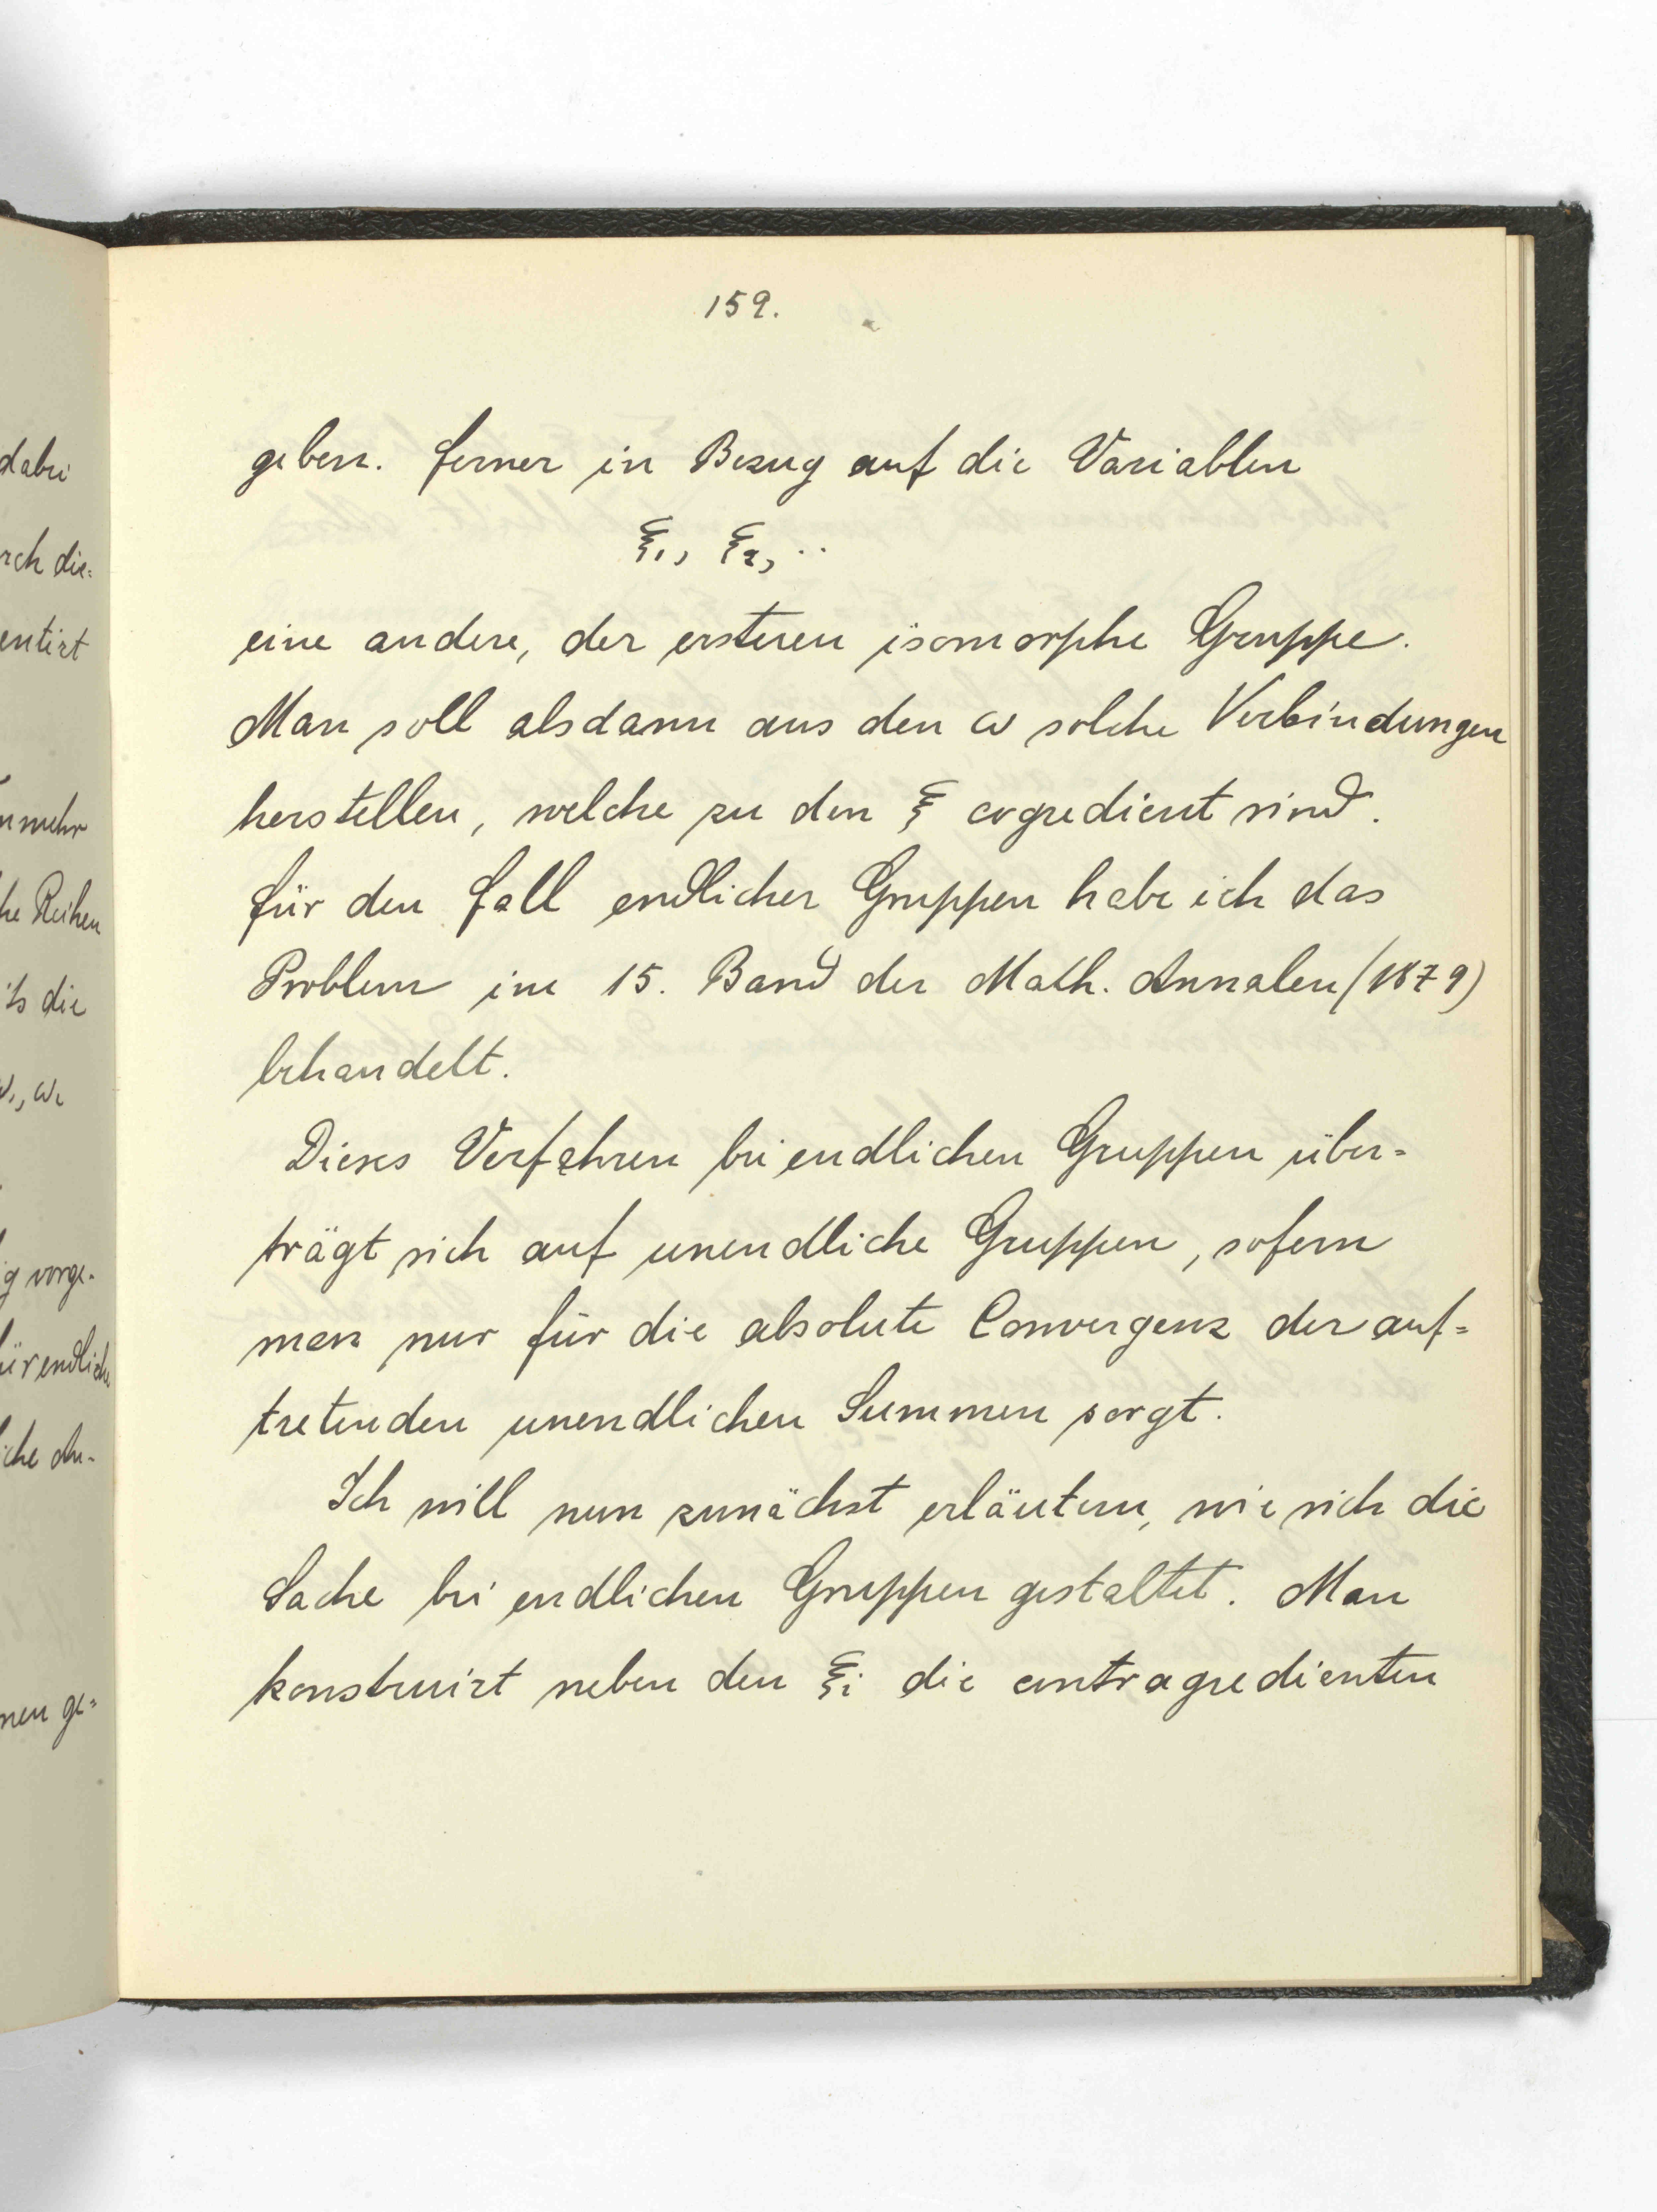 159.
geben. Ferner in Bezug auf die Variablen
ξ₁, ξ₂, ..
eine andere, der ersteren isomorphe Gruppe.
Man soll alsdann aus den ω solche Verbindungen
herstellen, welche zu den ξ cogredient sind.
Für den Fall endlicher Gruppen habe ich das
Problem im 15. Band der Math. Annalen (1879)
behandelt.
Dieses Verfahren bei endlichen Gruppen über=
trägt sich auf unendliche Gruppen, sofern
man nur für die absolute Convergenz der auf=
tretenden unendlichen Summen sorgt.
Ich will nun zunächst erläutern, wie sich die
Sache bei endlichen Gruppen gestaltet. Man
konstruirt neben den ξi die contragredienten
dabei
rch die=
entirt
nmehr
he Reihen
ts die
ω₁, ω₂
g vorge-
ür endliche
iche An-
nen ge=